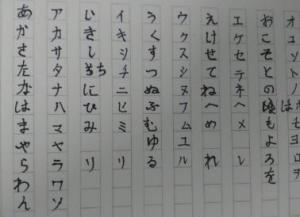 オコソトノホモヨロヲ
おこそとのほもよろを
エケセテネヘメ レ
えけせてねへめ れ
ウクスツヌフムユル
うくすつぬふむゆる
イキシチニヒミ リ
いきしちにひみ り
アカサタナハマヤラワン
あかさたなはまやらわん